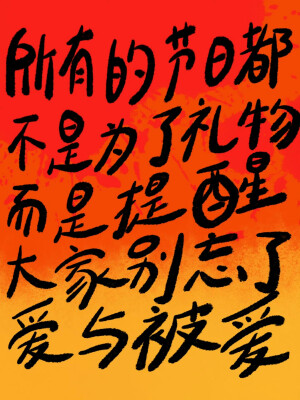 所有的节日都
不是为了礼物
而是提醒
大家别忘了
爱与被爱